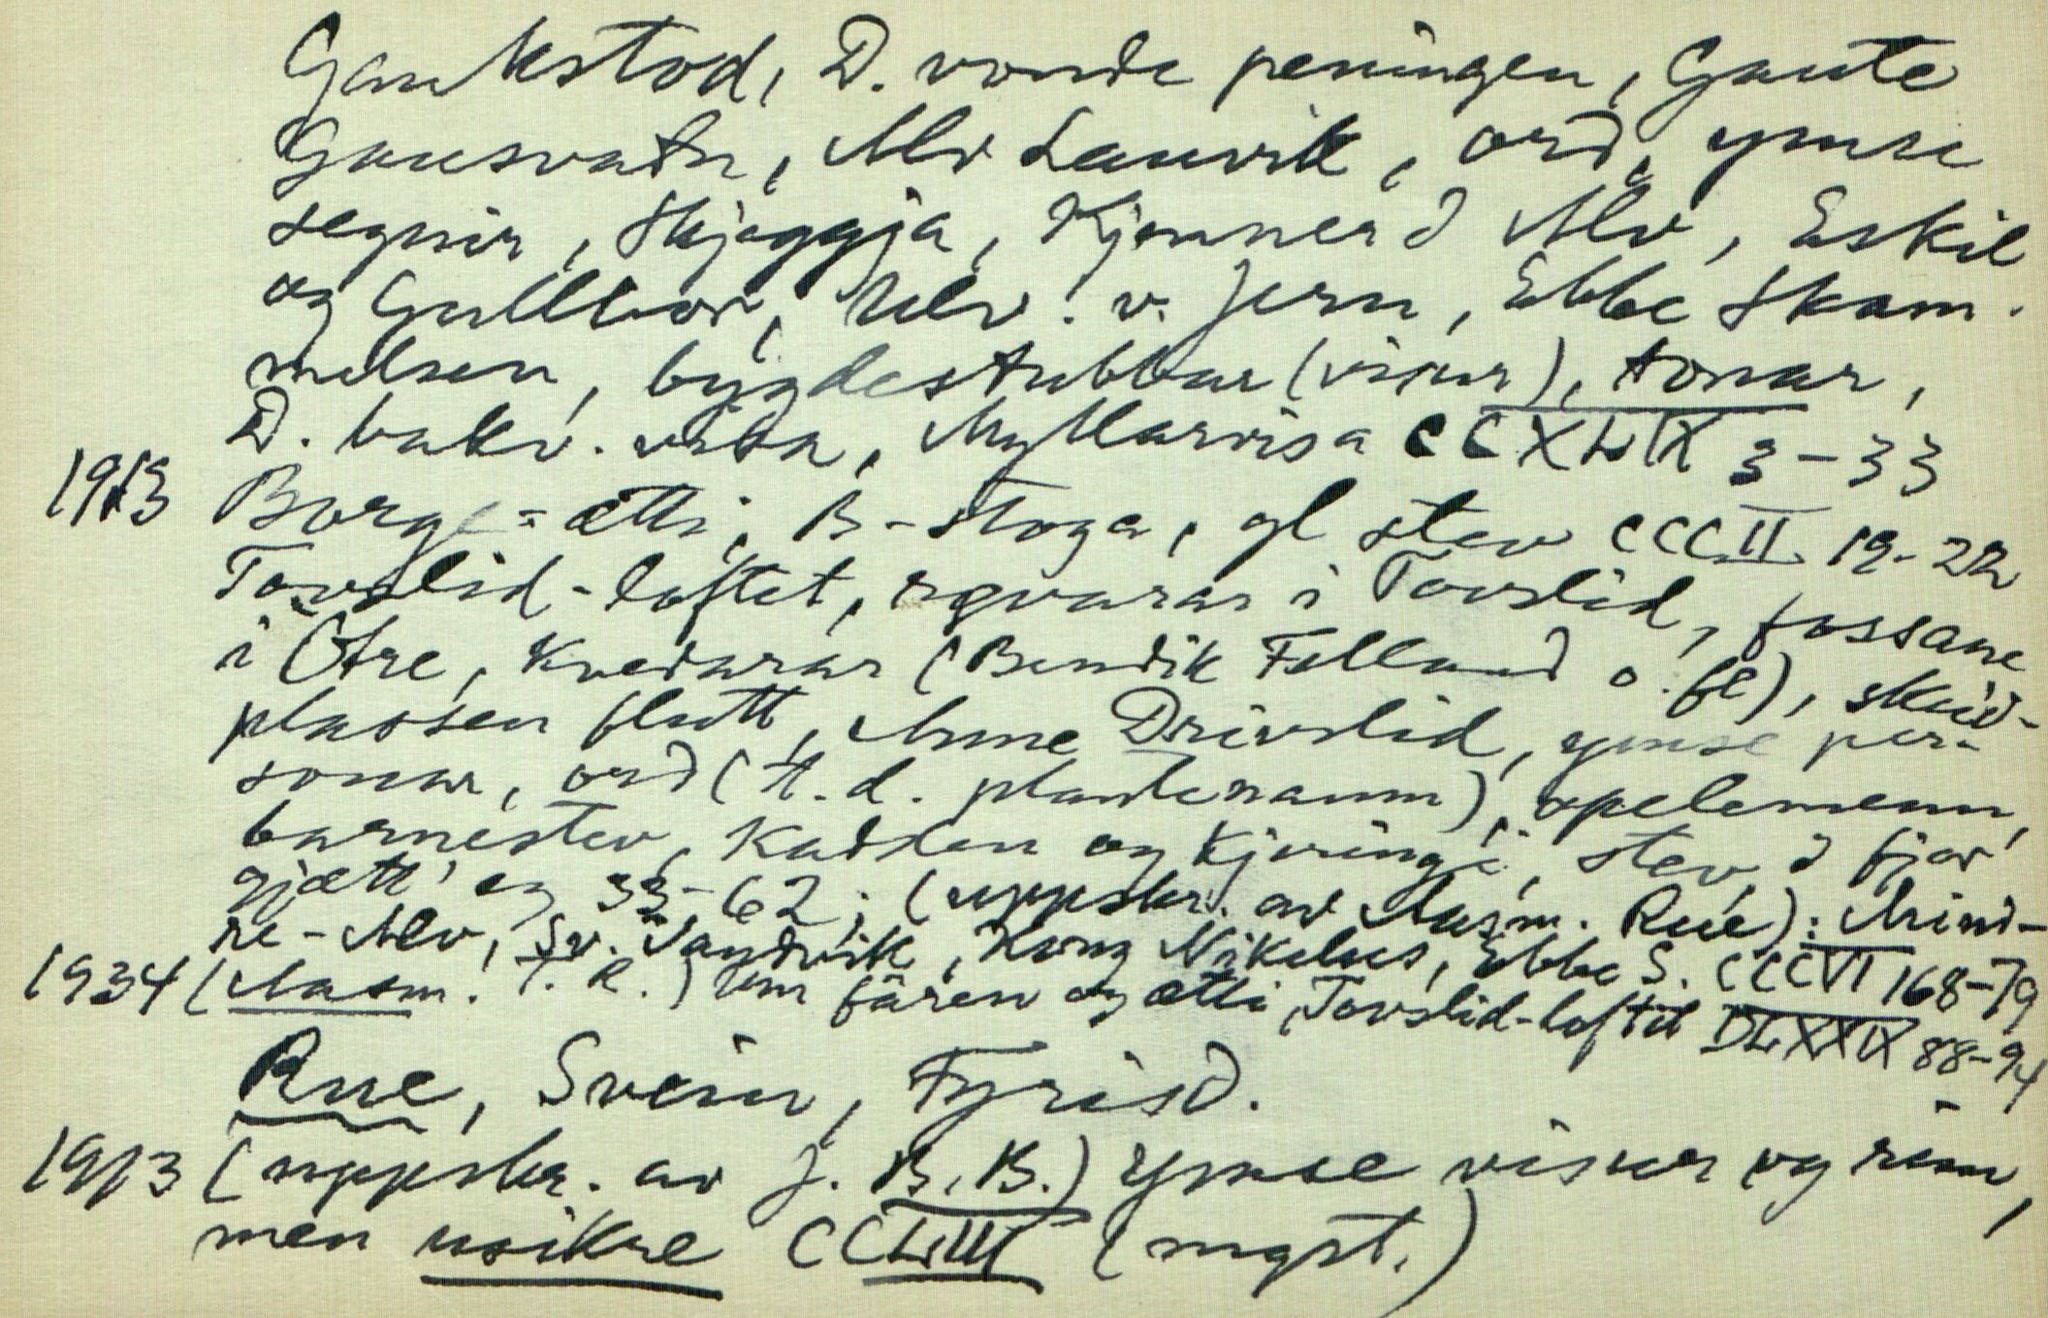 Gaukstod, D. vonde peningen, Gaute
Gausvatn, Alv Lauvik, ord, ymse
segnir, Skjeggja, Kjønnerd Alv, Eskil
og Gullbor, Ulv. v. Jern, Ebbe Skam-
melsen, bygdestubbar (visur), tonar,
D. bakv. visa, Myllarvisa CCXLIX 3-33
1913 Borge-ætti, B-stoga, gl stev CCCII 19-22
Tovslid-loftet, i Tovslid, fossane
i Otre, kvedarar (Bendik Felland o. fl), skeid-
plassen flutt, Anne Drivslid, ymse per-
sonar, ord (t.d. plantenamn), spelemenn,
barnestev, Kadden og kjeringi, stev, d fjor
gjætt' eg 33-62; (uppskr. av Aasm. Rue): Mind-
re-Alv, Sv. Vandvik, Kong Nikelus, Ebbe S. CCCVI 168-79
1934 (Aasm. T. R.) Um faren og ætti, Tovslid-loftet DLXXIX 88-94
Rue, Svein, Fyrisd.
1913 (uppskr. av J. B. B.) Ymse visur og rim,
men usikre CCLIII (mgst.)